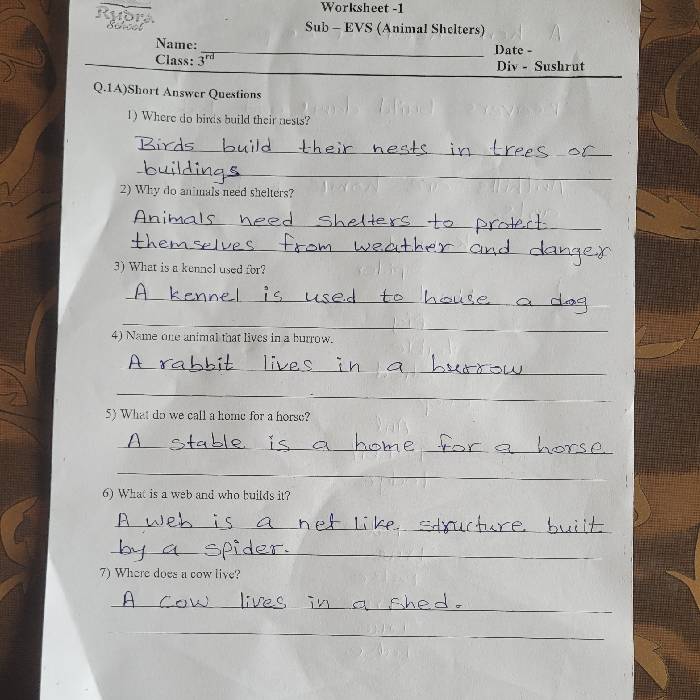 Rudra
School
Worksheet -1
Sub – EVS (Animal Shelters)
Name:
Date -
Class: 3rd
Div - Sushrut
Q.1A)Short Answer Questions
1) Where do birds build their nests?
Birds build their nests in trees or
buildings
2) Why do animals need shelters?
Animals need shelters to protect
themselves from weather and danger
3) What is a kennel used for?
A kennel is used to house a dog
4) Name one animal that lives in a burrow.
A rabbit lives in a burrow
5) What do we call a home for a horse?
A stable is a home for a horse
6) What is a web and who builds it?
A web is a net like structure built
by a spider.
7) Where does a cow live?
A cow lives in a shed.